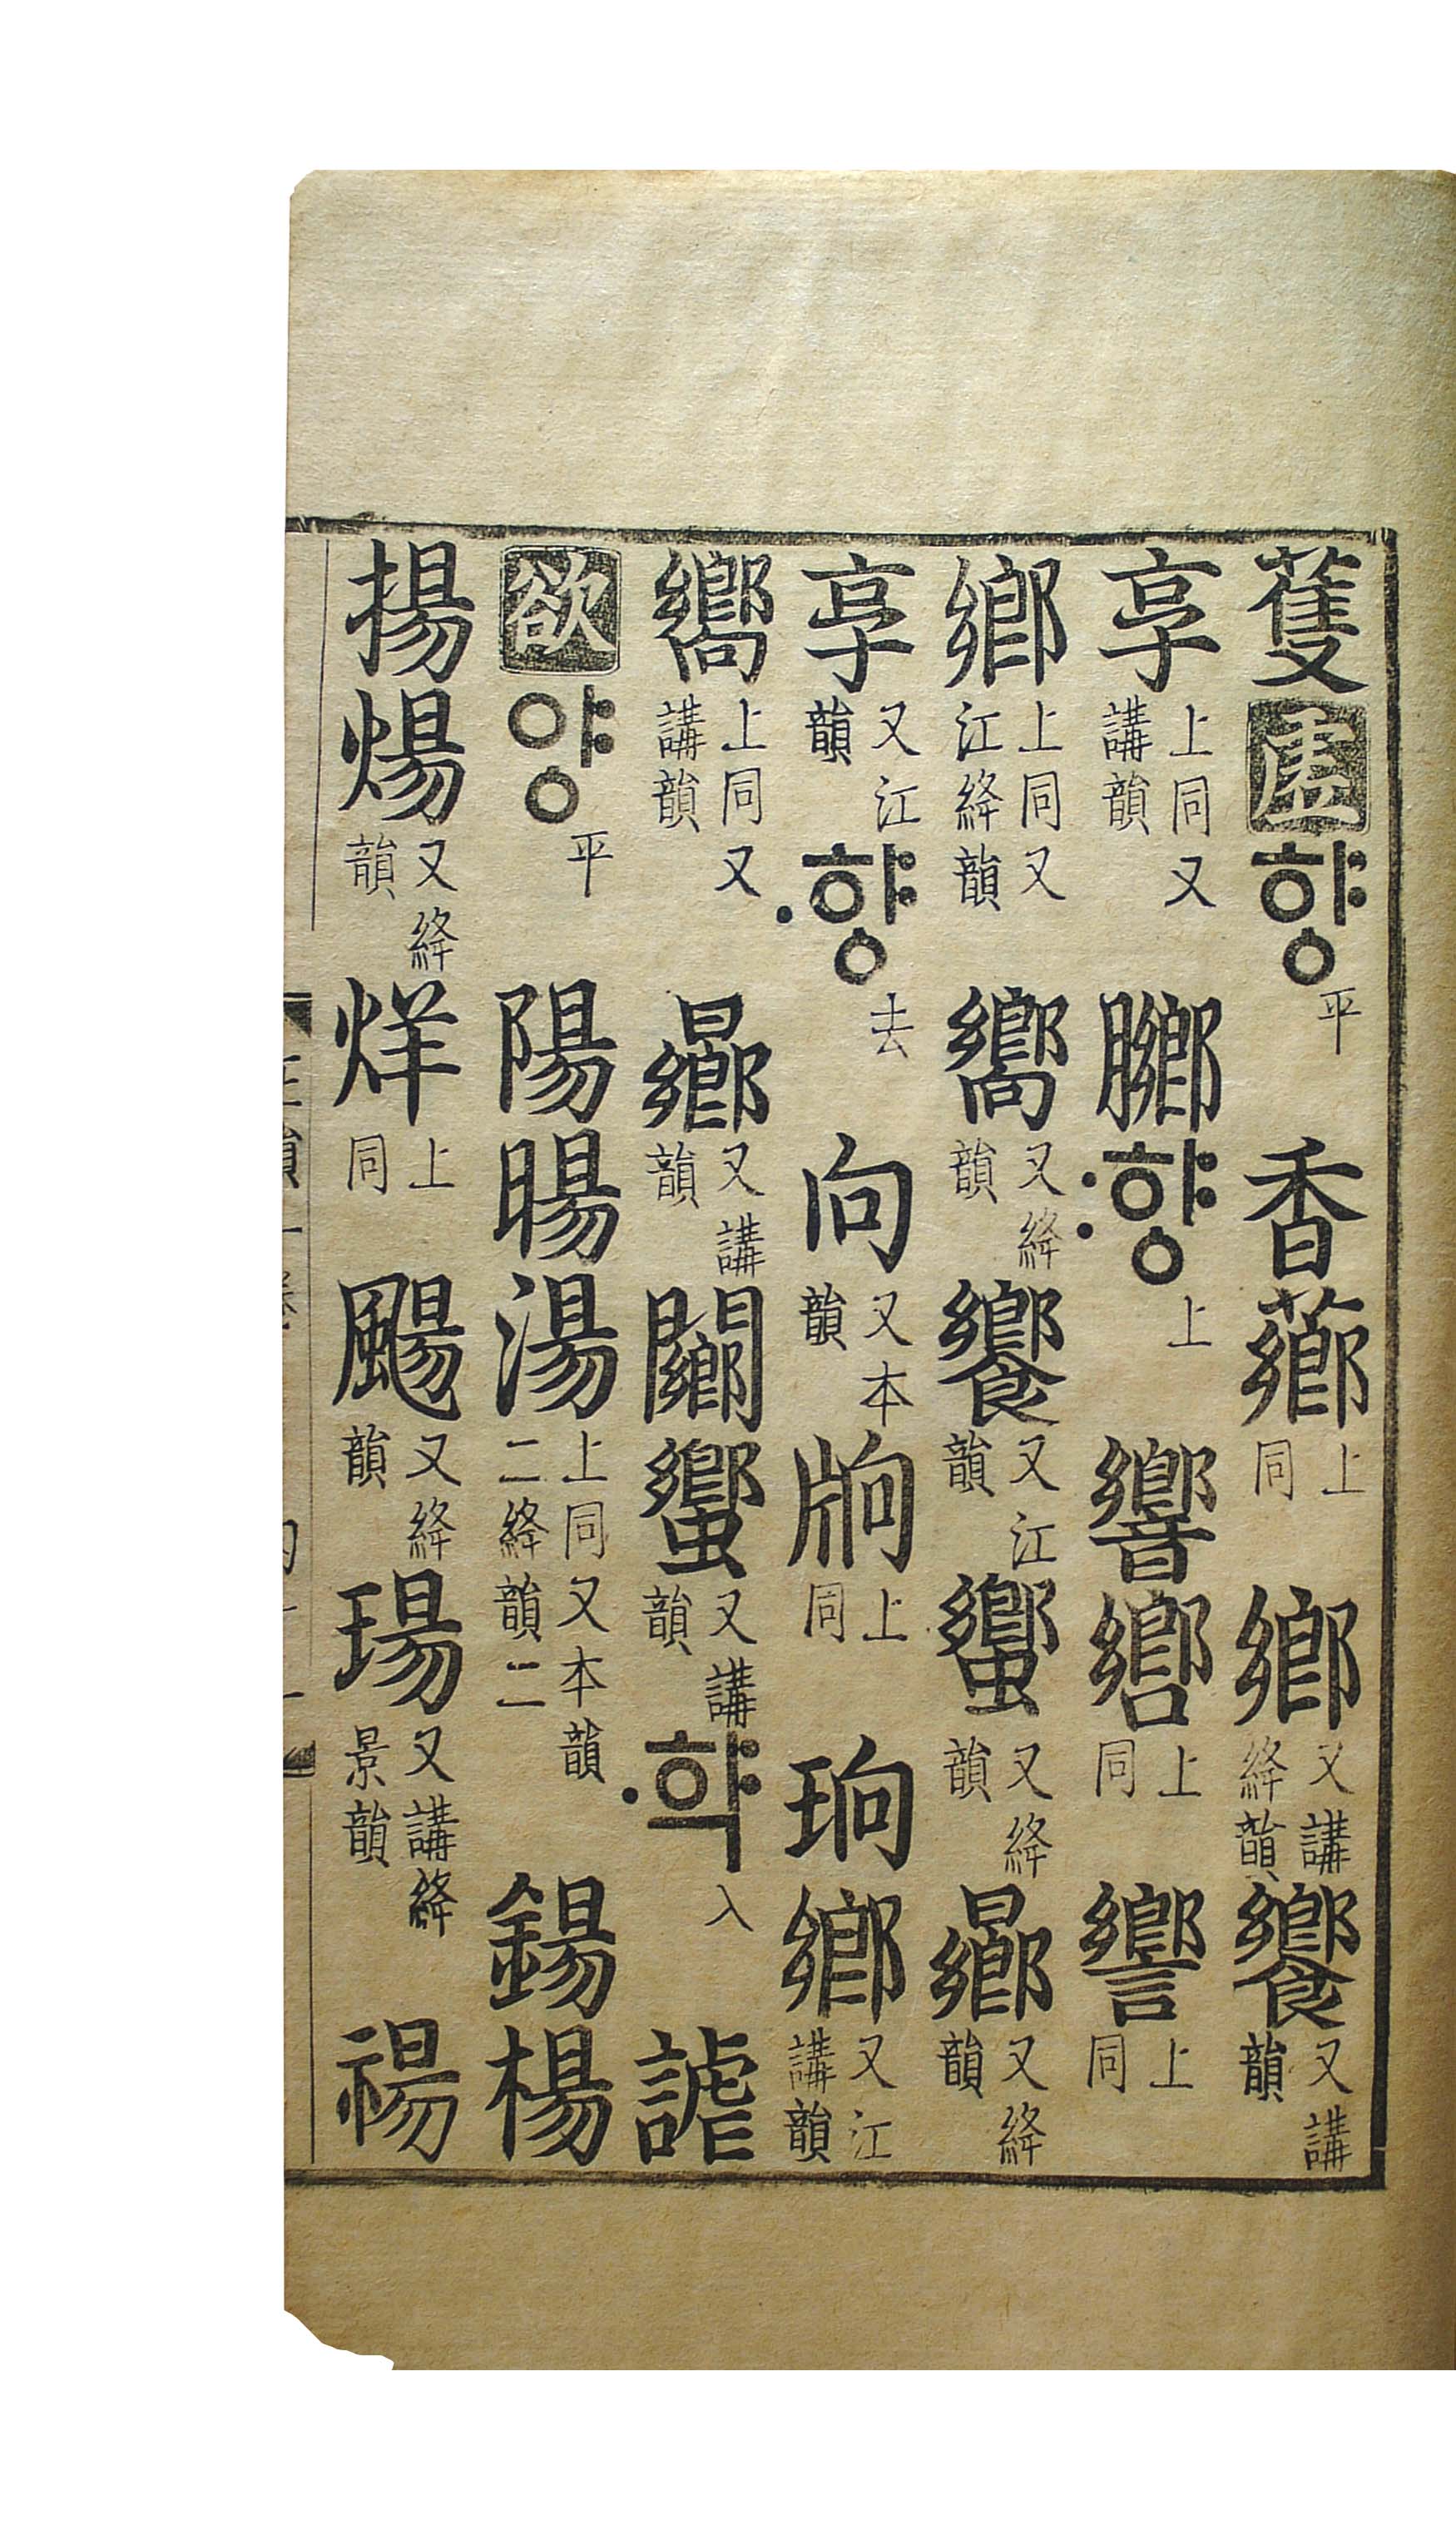 蒦虛향平香薌上同鄉又講絳韻饗又講韻
享上同又講韻膷향〯上響上同上同
鄉上同又江絳韻嚮又絳韻饗又江韻蠁又絳韻曏又絳韻
享又江韻향〮去向又本韻上同珦鄉又江講韻
嚮上同又講韻曏又講韻闀蠁又講韻햑〮入謔
欲양平陽暘湯上同又本韻二絳韻二鍚楊
揚煬又絳韻烊上同颺又絳韻瑒又講絳景韻禓